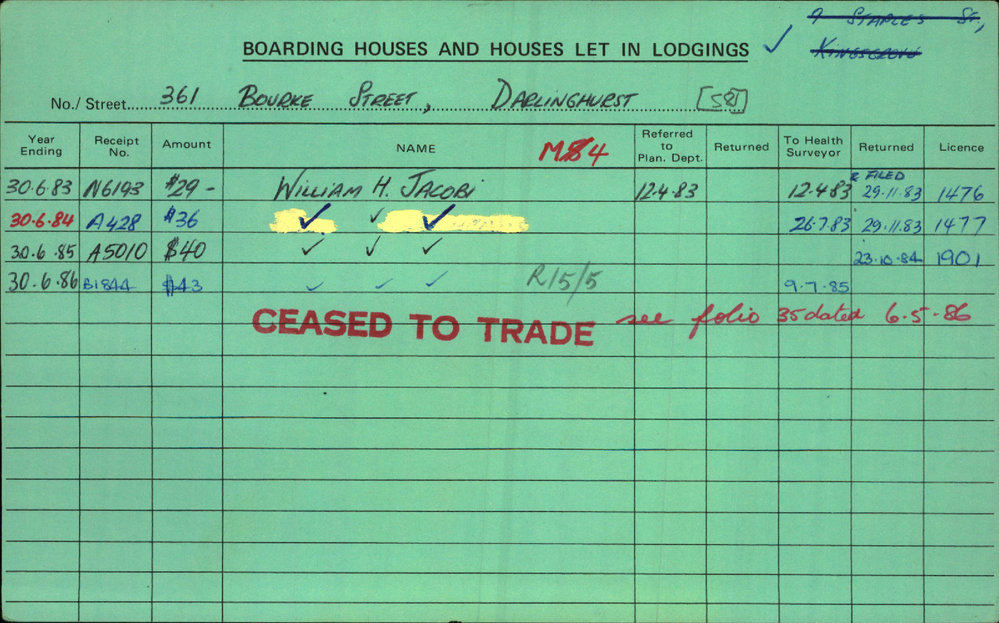 9 STAPLES ST,
KINGSGROVE
BOARDING HOUSES AND HOUSES LET IN LODGINGS ✓
No./Street 361 BOURKE STREET, DARLINGHURST
Year Ending Receipt No. Amount NAME M84 Referred to Plan. Dept. Returned To Health Surveyor Returned Licence
& FILED
30.6.83 N6193 $29 - WILLIAM H. JACOBI 12.4.83 12.4.83 29.11.83 1476
30.6.84 A428 $36 ✓ ✓ ✓ 26.7.83 29.11.83 1477
30.6.85 A5010 $40 ✓ ✓ ✓ 23.10.84 1901
30.6.86 B1844 $43 ✓ ✓ ✓ R15/5 9.7.85
CEASED TO TRADE see folio 35 dated 6.5.86